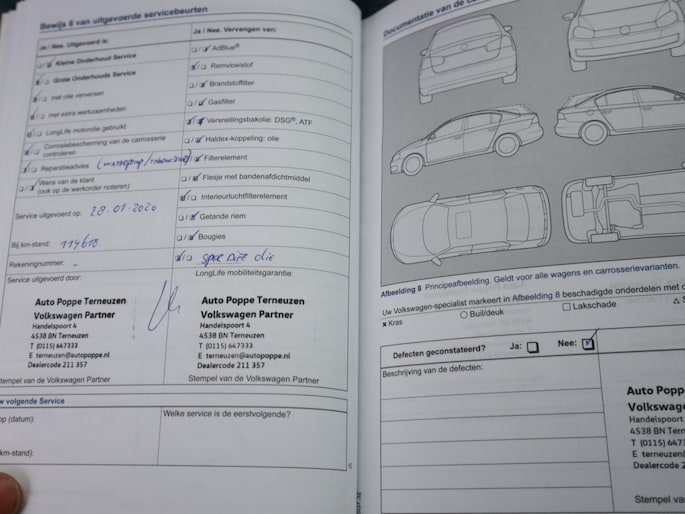 Bewijs 6 van uitgevoerde servicebeurten
Ja / Nee. Uitgevoerd is:
Kleine Onderhoud Service
Grote Onderhouds Service
met olie verversen
met extra werkzaamheden
LongLife motorolie gebruikt
Corrosiebescherming van de carrosserie
controleren
Reparatieadvies
Wens van de klant
(ook op de werkorder noteren)
Service uitgevoerd op: 28-01-2020
Bij km-stand: 114618.
Rekeningnummer: -
Service uitgevoerd door:
Auto Poppe Terneuzen
Volkswagen Partner
Handelspoort 4
4538 BN Terneuzen
T (0115) 647333
E terneuzen@autopoppe.nl
Dealercode 211 357
Stempel van de Volkswagen Partner
Ja / Nee. Vervangen van:
AdBlue®
Remvloeistof
Brandstoffilter
Gasfilter
Versnellingsbakolie: DSG®, ATF
Haldex-koppeling: olie
Filterelement
Flesje met bandenafdichtmiddel
Interieurluchtfilterelement
Getande riem
Bougies
sper Diff olie
LongLife mobiliteitsgarantie:
Auto Poppe Terneuzen
Volkswagen Partner
Handelspoort 4
4538 BN Terneuzen
T (0115) 647333
E terneuzen@autopoppe.nl
Dealercode 211 357
Stempel van de Volkswagen Partner
w volgende Service
op (datum):
km-stand):
Welke service is de eerstvolgende?
Documentatie van de
Afbeelding 8 Principeafbeelding. Geldt voor alle wagens en carrosserievarianten.
Uw Volkswagen-specialist markeert in Afbeelding 8 beschadigde onderdelen met
x Kras
Buil/deuk
Lakschade
Defecten geconstateerd? Ja: Nee:
Beschrijving van de defecten:
Auto Popp
Volkswage
Handelspoort
4538 BN Tern
T (0115) 6473
E terneuzen
Dealercode 2
Stempel va